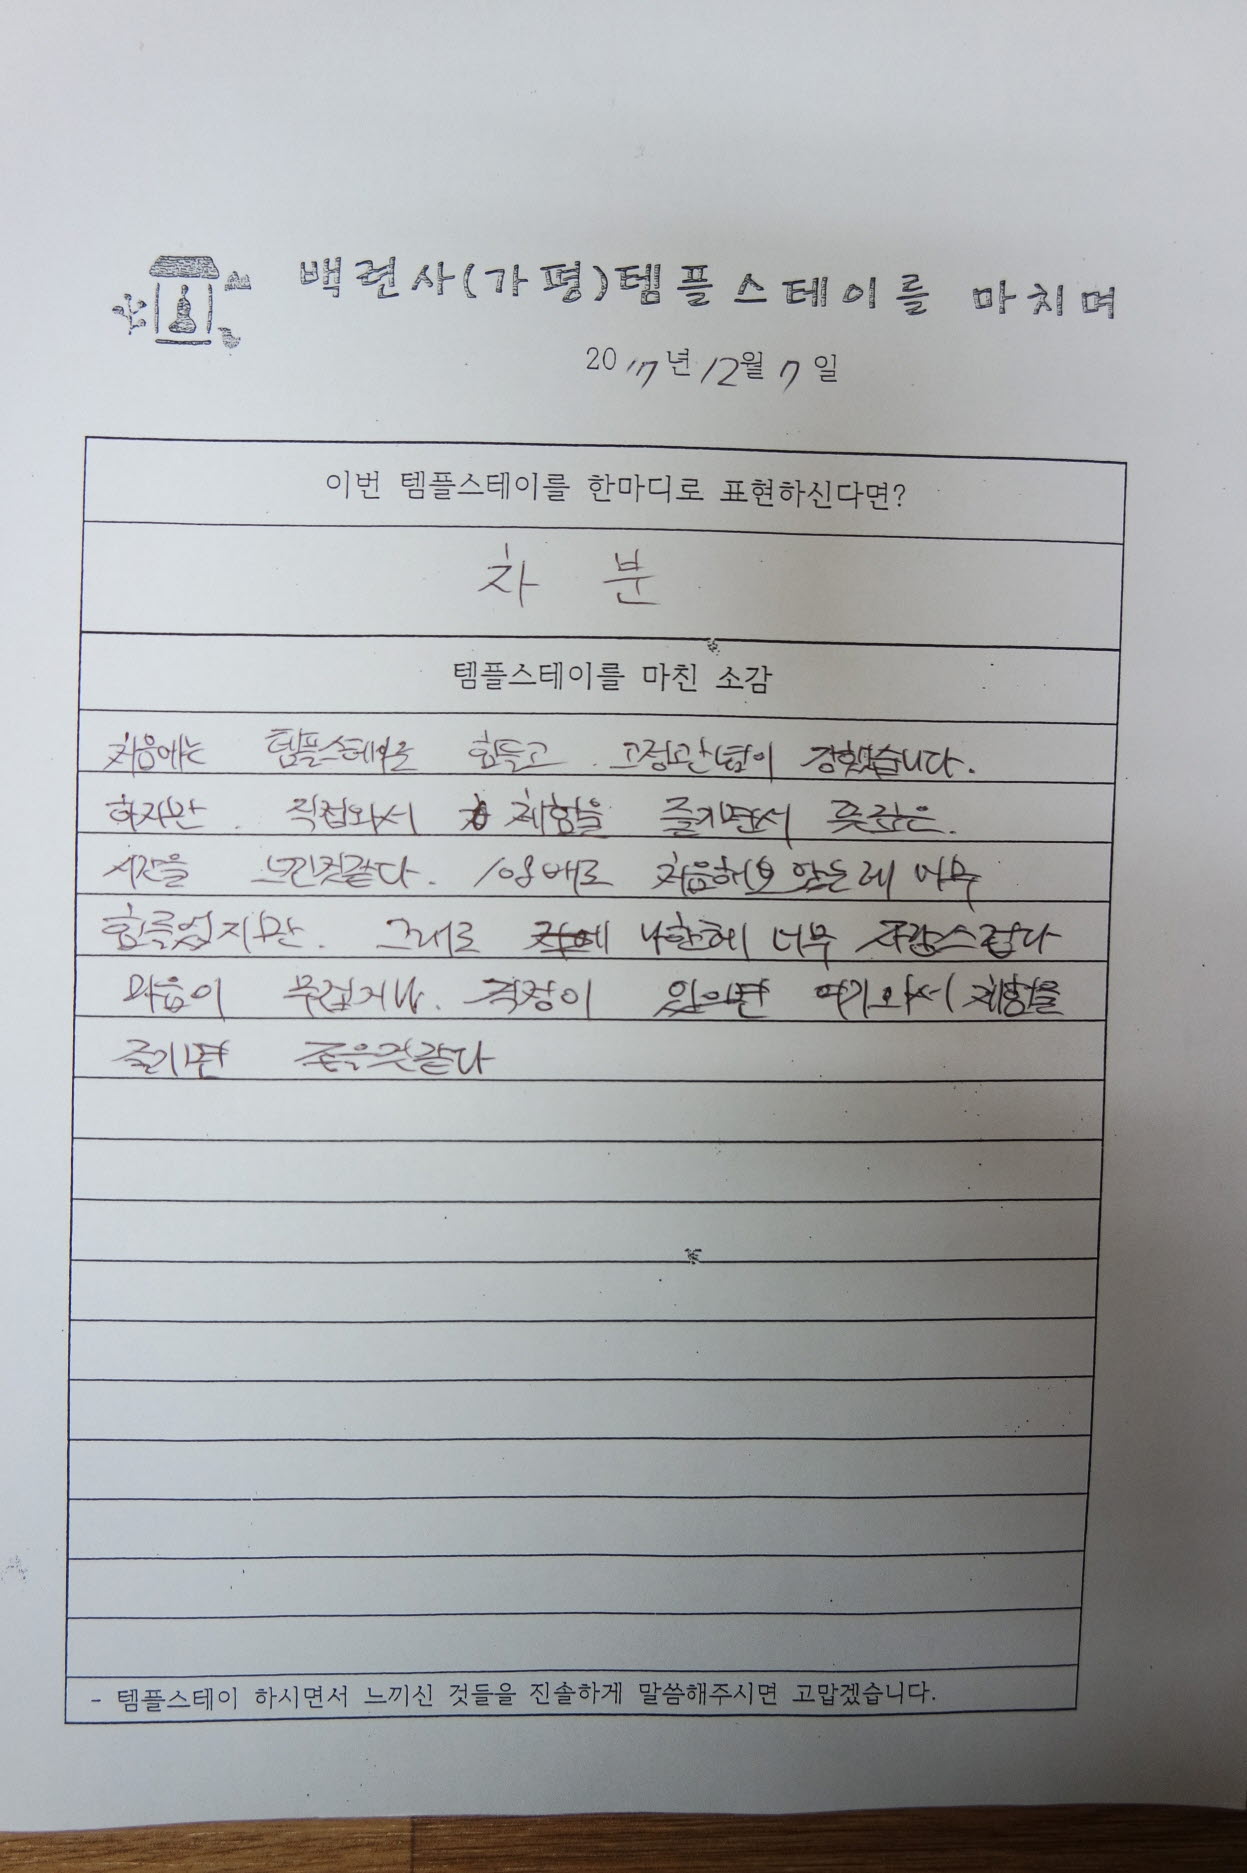 백련사(가평)템플스테이를 마치며
2017년 12월 7일
이번 템플스테이를 한마디로 표현하신다면?
차 분
템플스테이를 마친 소감
처음에는 템플스테이로 힘들고. 고정관념이 강했습니다.
하지만. 직접와서 체험을 즐기면서 뜻깊은.
시간을 느낀것같다. 108배로 처음해보았는데 너무
힘들었지만. 그래도 나한테 너무 자랑스럽다
마음이 무겁거나. 걱정이 있으면 여기와서 체험을
즐기면 좋을것같다
- 템플스테이 하시면서 느끼신 것들을 진솔하게 말씀해주시면 고맙겠습니다.